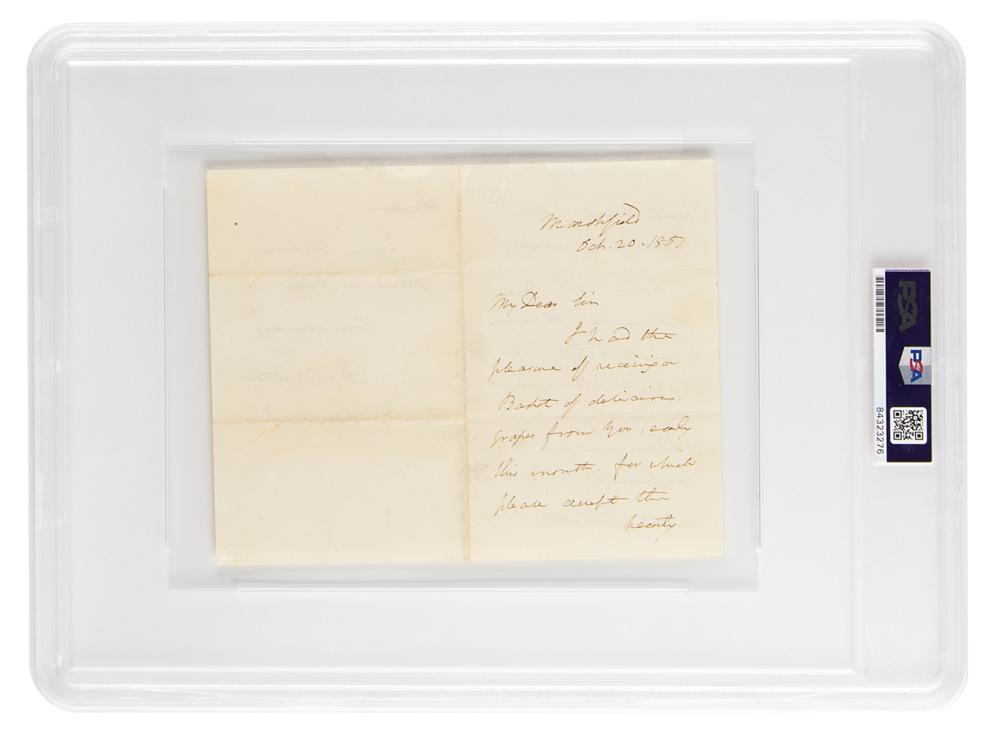 Marshfield
Oct. 20. 1851
My Dear Sir
I had the
pleasure of receiving a
Basket of delicious
grapes from you, early
this month, for which
please accept the
hearty
PSA
PSA
84323276